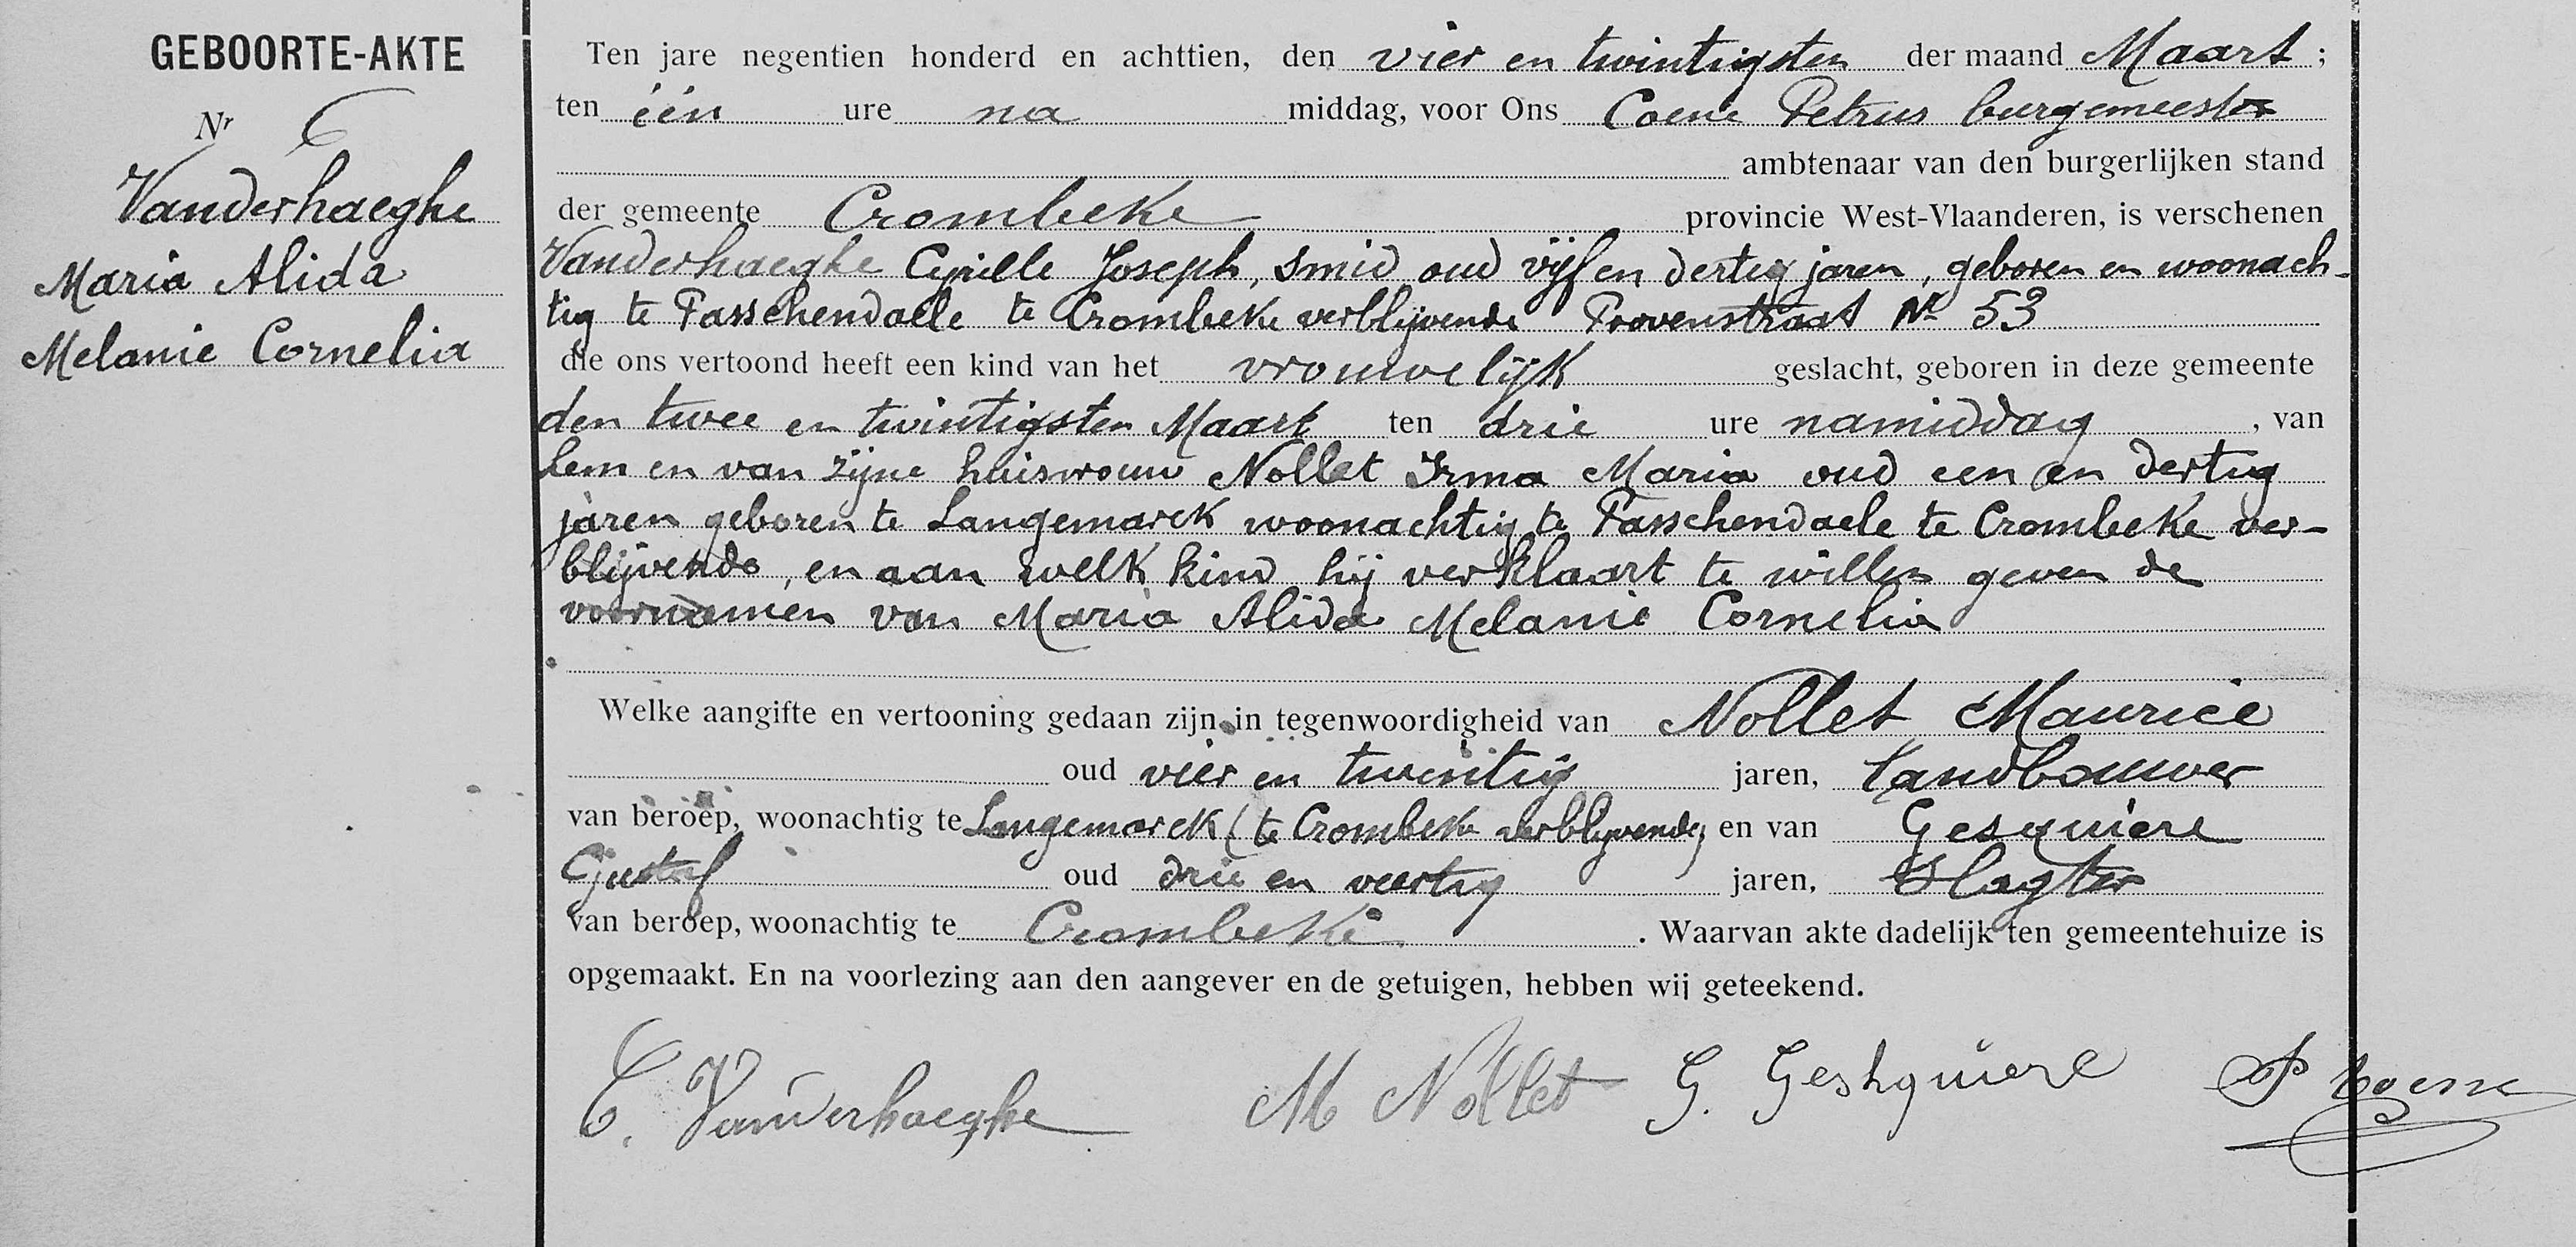 GEBOORTE-AKTE
Nr 6
Vanderhaeghe
Maria Alida
Melanie Cornelia
Ten jare negentien honderd en achttien, den vier en twintigsten der maand Maart ;
ten één ure na middag, voor Ons Coene Petrus burgemeester
ambtenaar van den burgerlijken stand
der gemeente Crombeke provincie West-Vlaanderen, is verschenen
Vanderhaeghe Cyrille Joseph, smid oud vijf en dertig jaren, geboren en woonach-
tig te Passchendaele te Crombeke verblijvende Provenstraat Nr 53
die ons vertoond heeft een kind van het vrouwelijk geslacht, geboren in deze gemeente
den twee en twintigsten Maart ten drie ure namiddag , van
hem en van zijne huisvrouw Nollet Irma Maria oud een en dertig
jaren geboren te Langemarck woonachtig te Passchendaele te Crombeke ver-
blijvende, en aan welk kind hij verklaart te willen geven de
voornamen van Maria Alida Melanie Cornelia
Welke aangifte en vertooning gedaan zijn in tegenwoordigheid van Nollet Maurice
oud vier en twintig jaren, landbouwer
van beroep, woonachtig te Langemarck (te Crombeke verblijvende) en van Gesquiere
Gustaf oud drie en veertig jaren, Slagter
van beroep, woonachtig te Crombeke . Waarvan akte dadelijk ten gemeentehuize is
opgemaakt. En na voorlezing aan den aangever en de getuigen, hebben wij geteekend.
C. Vanderhaeghe M Nollet G. Geshquiere P Coene